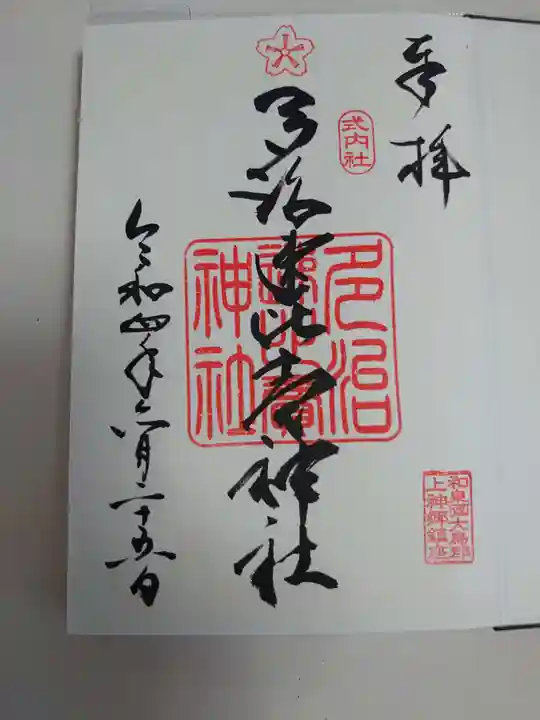 奉拝
式内社
多治速比売神社
多治
速比賣
神社
和泉国大鳥郡
上神郷鎮座
令和四年六月二十五日